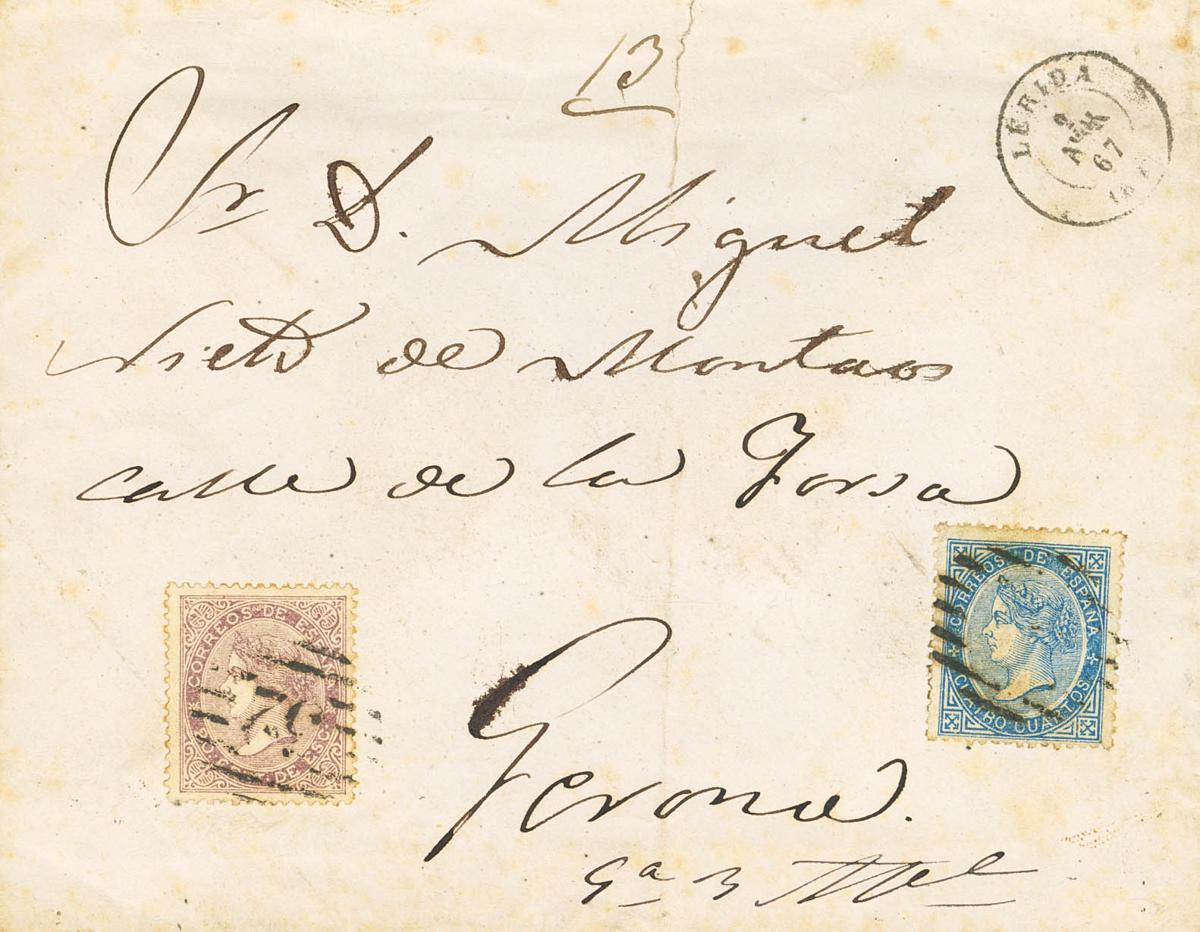 13
LERIDA
2
67
Sr D. Miguel
Nieto de Montaos
calle de la Forsa
CORREOS DE ESPAÑA
CUATRO CUARTOS
CORREOS DE ESPAÑA
DE ESC
Gerona.